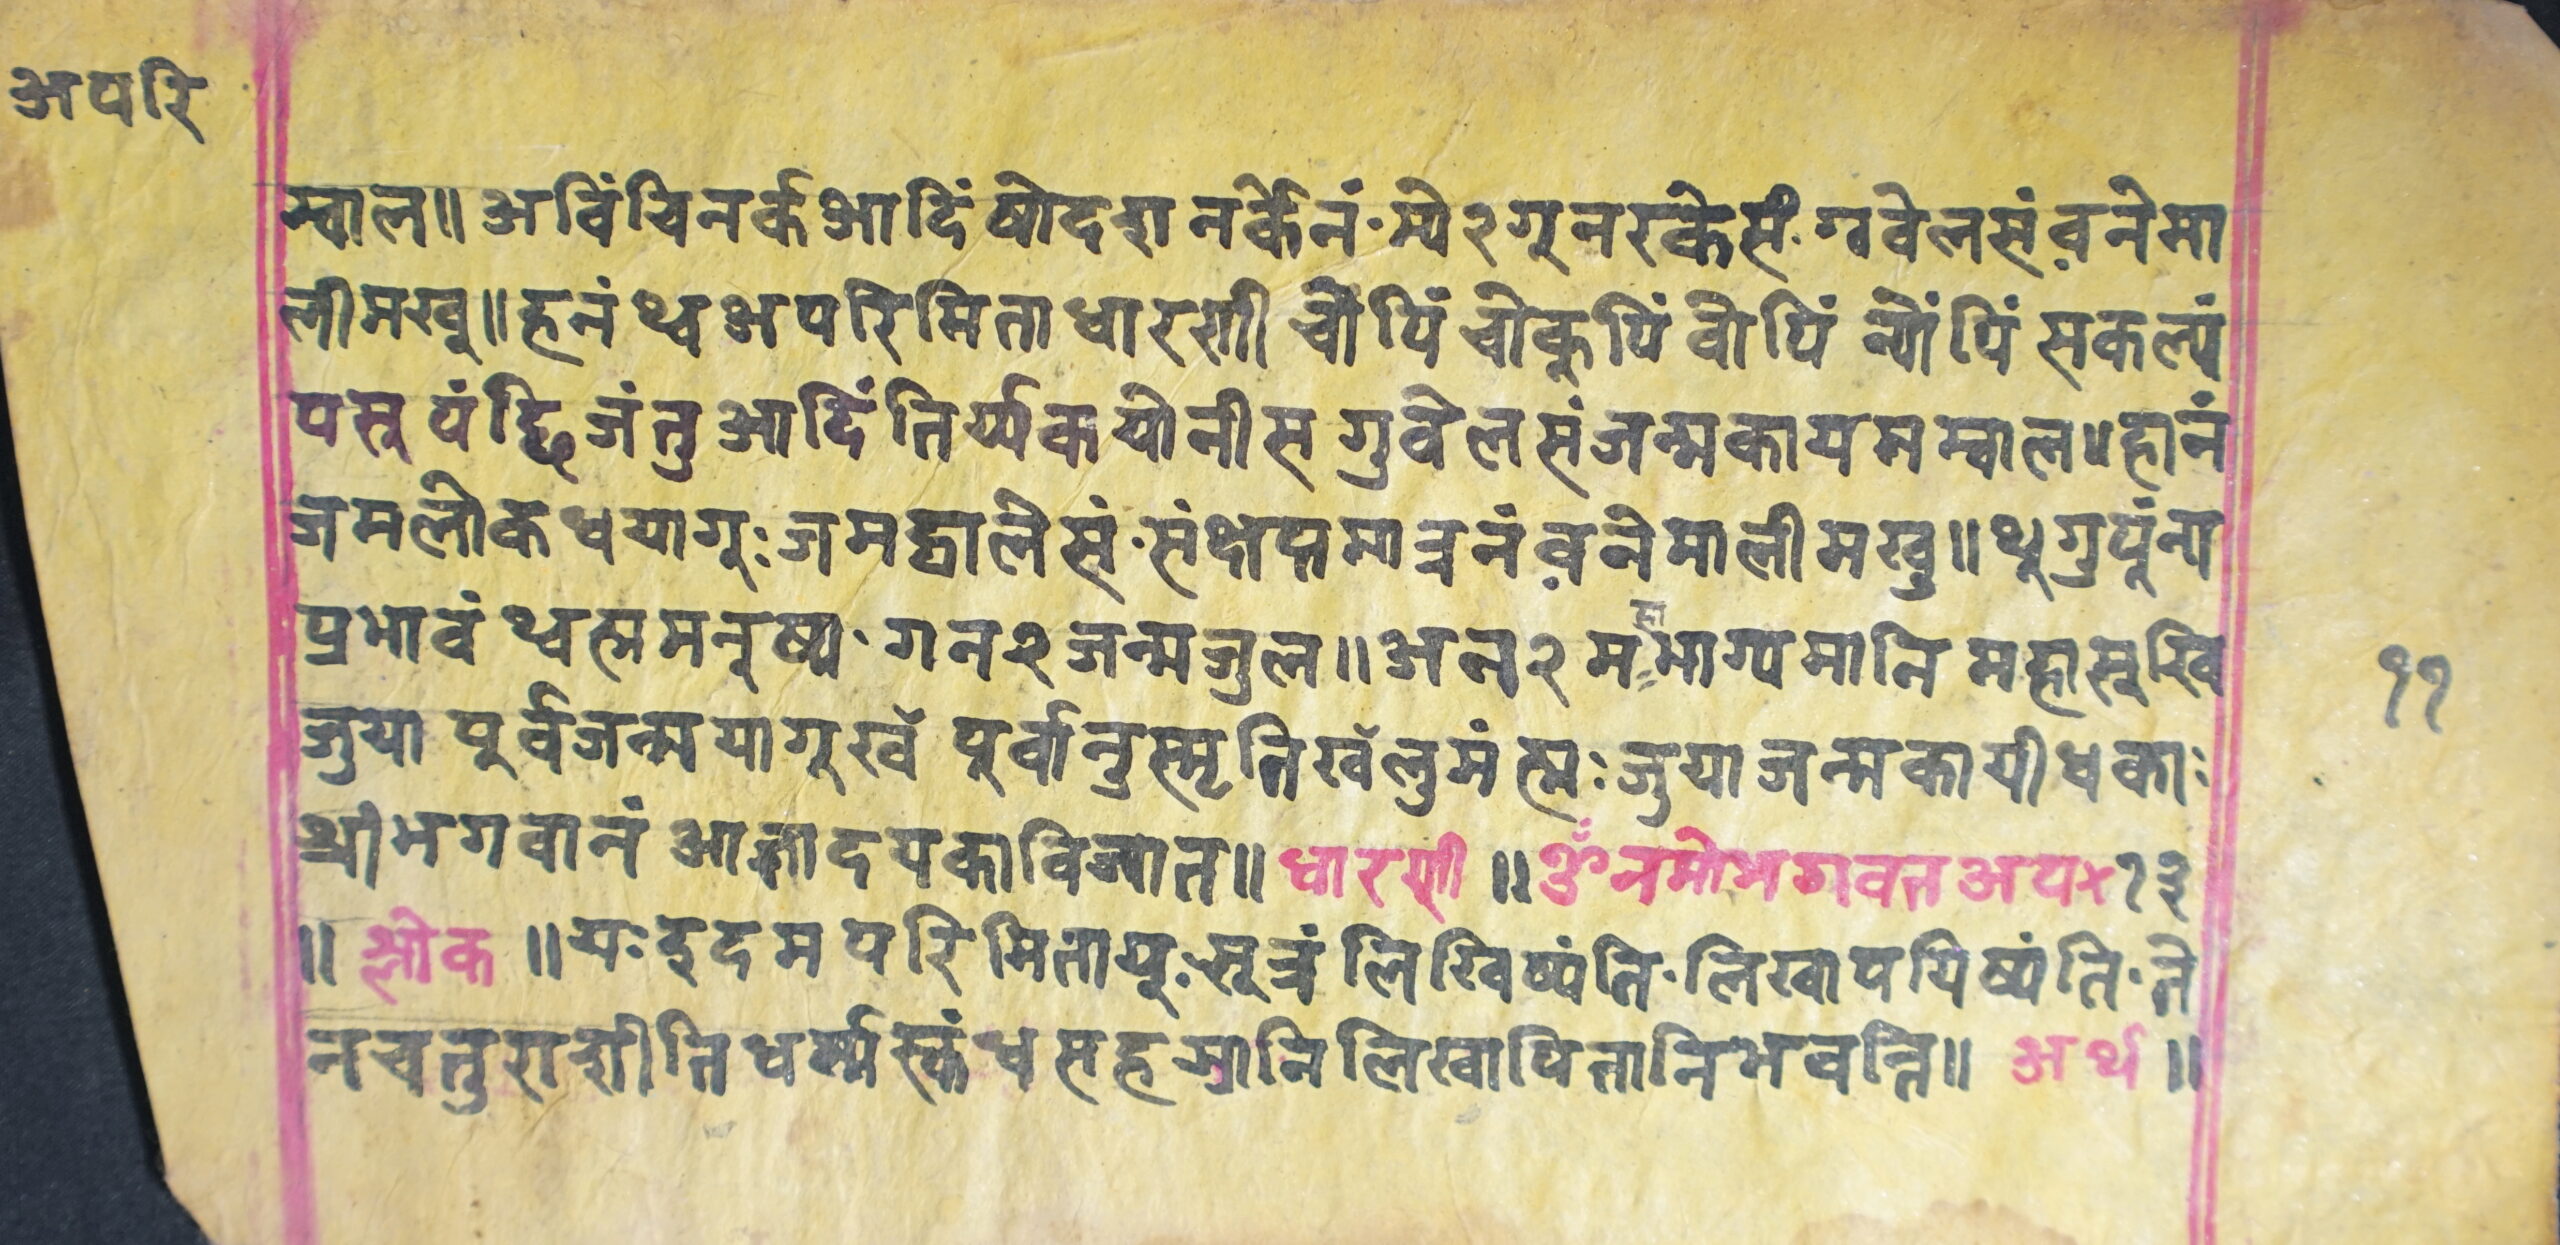 अपरि
म्वाल॥ अविंचिनर्क आदिं षोदश नर्केनं·म्ये२गू नरकेसं·गवेलसं व़नेमा
लीमखु॥ह्नं थ्व अपरिमिता धारणी चोंपिं चोकुपिं वोपिं न्योंपिं सकल्यं
पसु पंछि जंतु आदिं तिर्य्यक योनीस गुवेलसं जन्मकायम म्वाल॥हानं
जमलोक धयागूः जमद्वालेसं·संक्षप्तमात्रनं व़नेमालीमखु॥थुगु पूंन्या
प्रभावं थ्वह्ममनुष्य·गन२जन्मजुल॥अन२महाभाग्यमानि महासुखि
जुया पूर्वजन्मयागूखँ पूर्वानुस्मृतिखँलुमंह्मः जुया जन्मकायीधकाः
श्रीभगवानं आज्ञादयकाविज्यात॥धारणी॥ॐनमोभगवत अप×१३
॥श्लोक॥यःइदमपरिमितायुःसूत्रं लिखिष्यंति·लिखापयिष्यंति·ते
नचतुराशीतिधर्म्मस्कंधसहस्रानिलिखापितानिभवन्ति॥अर्थ॥
११